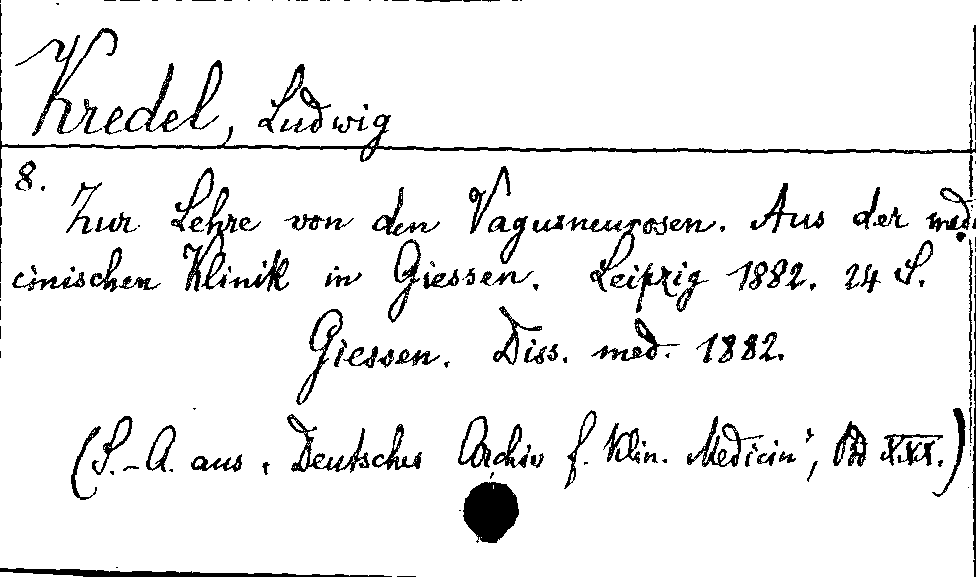 Kredel, Ludwig
8.
Zur Lehre von den Vagusneurosen. Aus der medi
cinischen Klinik in Giessen. Leipzig 1882. 24 S.
Giessen. Diss. med. 1882.
(S.-A. aus „Deutsches Archiv f. klin. Medicin“, Bd XXX.)